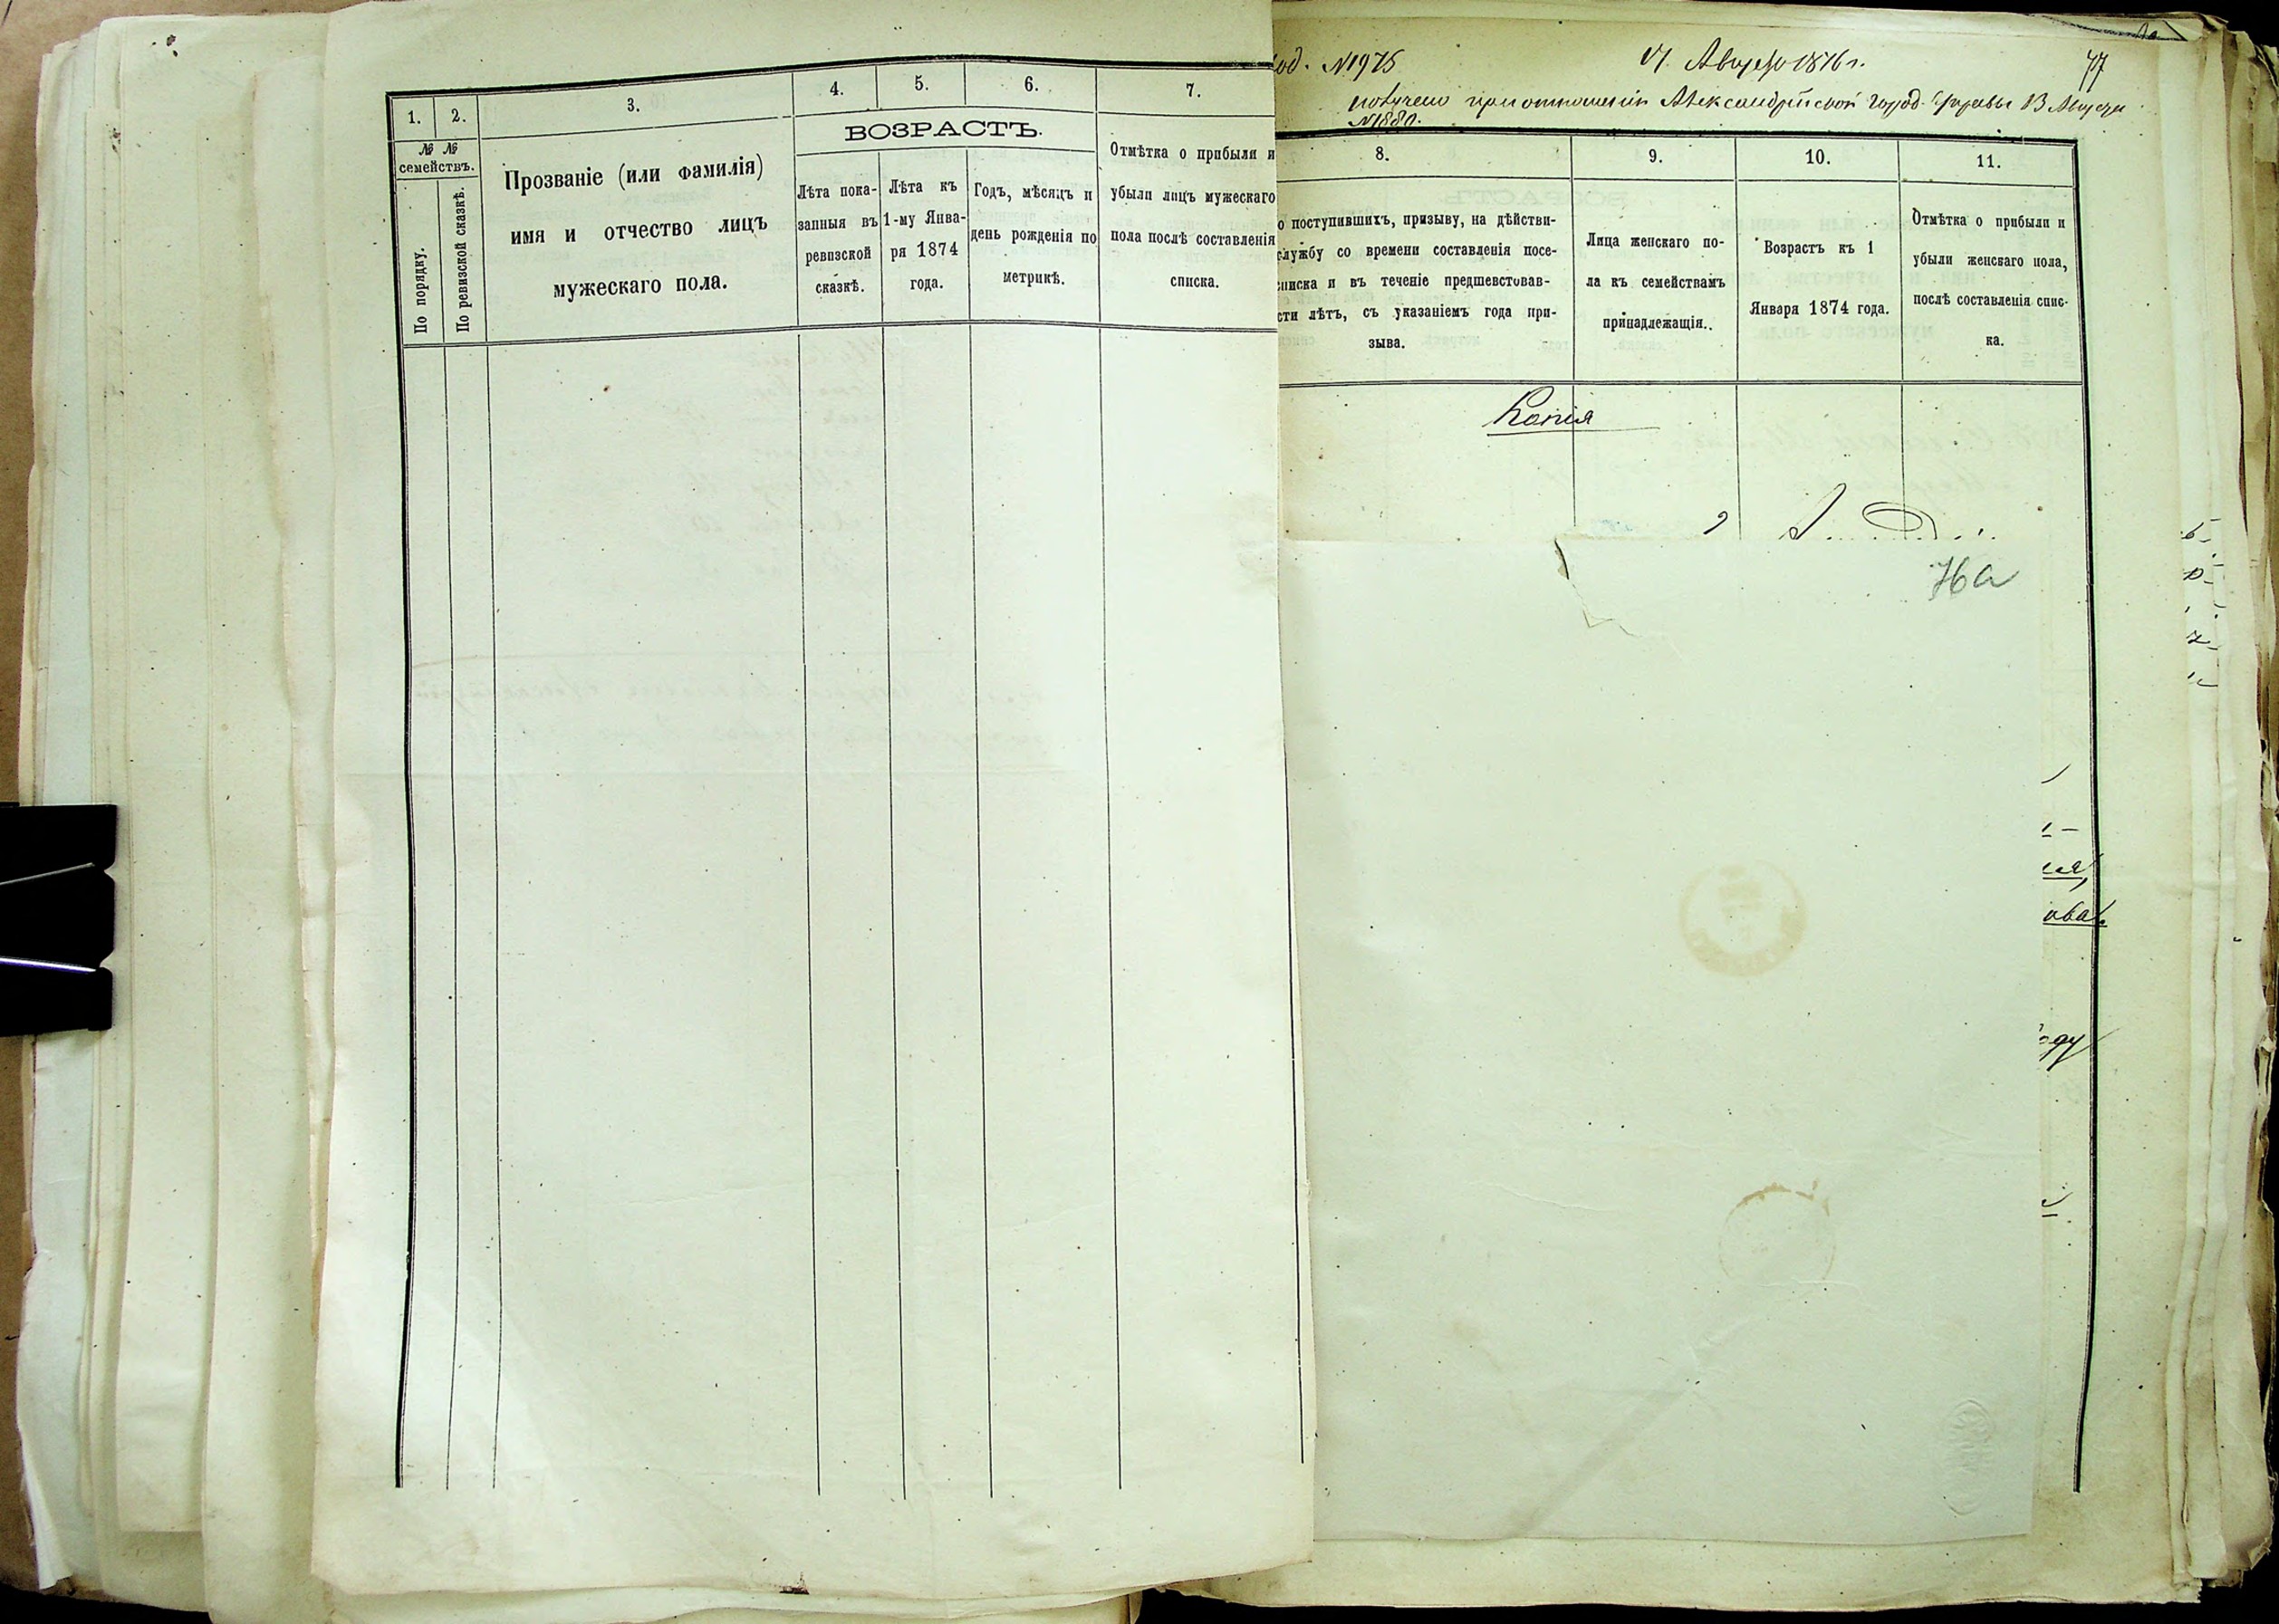 1.
2.
3.
4.
5.
6.
7.
№ №
семействъ.
По порядку.
По ревизской сказкѣ.
Прозваніе (или фамилія)
имя и отчество лицъ
мужескаго пола.
ВОЗРАСТЪ.
Лѣта пока-
занныя въ
ревизской
сказкѣ.
Лѣта къ
1-му Янва-
ря 1874
года.
Годъ, мѣсяцъ и
день рожденія по
метрикѣ.
Отмѣтка о прибыли и
убыли лицъ мужескаго
пола послѣ составленія
списка.
од. №1975
17. 1876 г.
77
получено при отношеніи Александрійской город. Управы 13
№1880.
8.
9.
10.
11.
о поступившихъ, призыву, на дѣйстви-
службу со времени составленія посе-
списка и въ теченіе предшевствовав-
сти лѣтъ, съ указаніемъ года при-
зыва.
Лица женскаго по-
ла къ семействамъ
принадлежащія.
Возрастъ къ 1
Января 1874 года.
Отмѣтка о прибыли и
убыли женскаго пола,
послѣ составленія спис-
ка.
Копія
76а
ова
оду